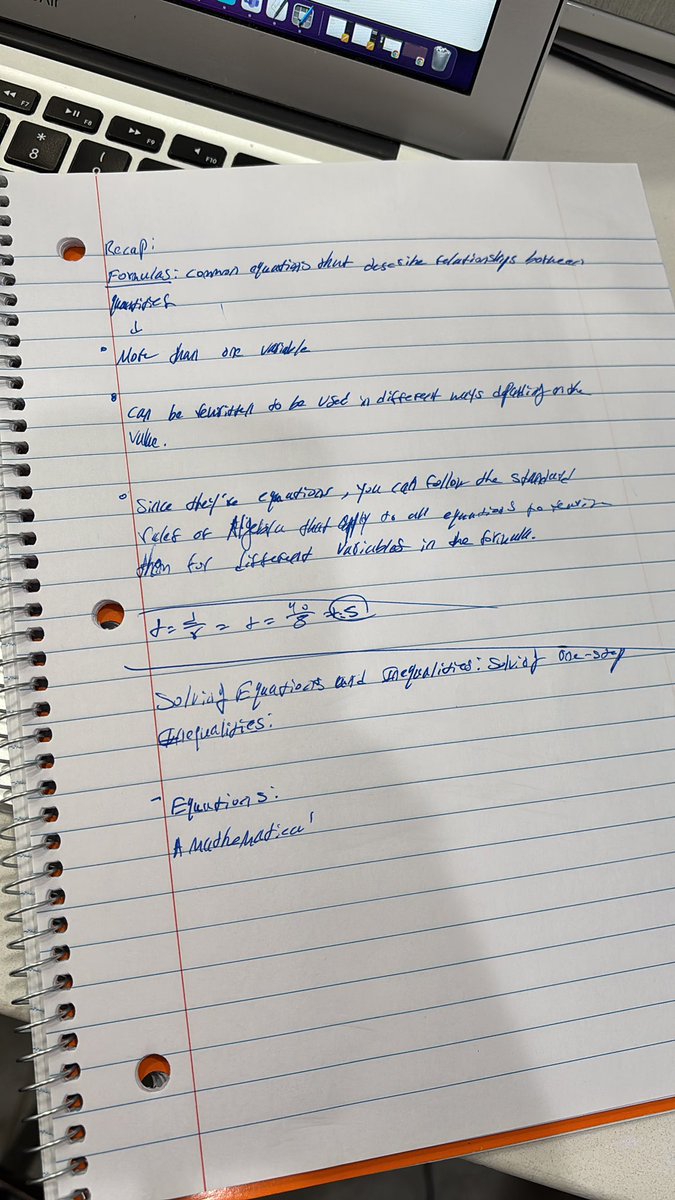 Air
F7
F8
F9
F10
*
8
(
Recap:
Formulas: common equations that describe relationships between
quantities
↓
• More than one variable
• Can be rewritten to be used in different ways depending on the
value.
• Since they're equations, you can follow the standard
rules of Algebra that apply to all equations to rewrite
them for different variables in the formula.
t = d/r = t = 40/8 = 5
Solving Equations and Inequalities: Solving One-step
Inequalities:
- Equations:
A mathematical